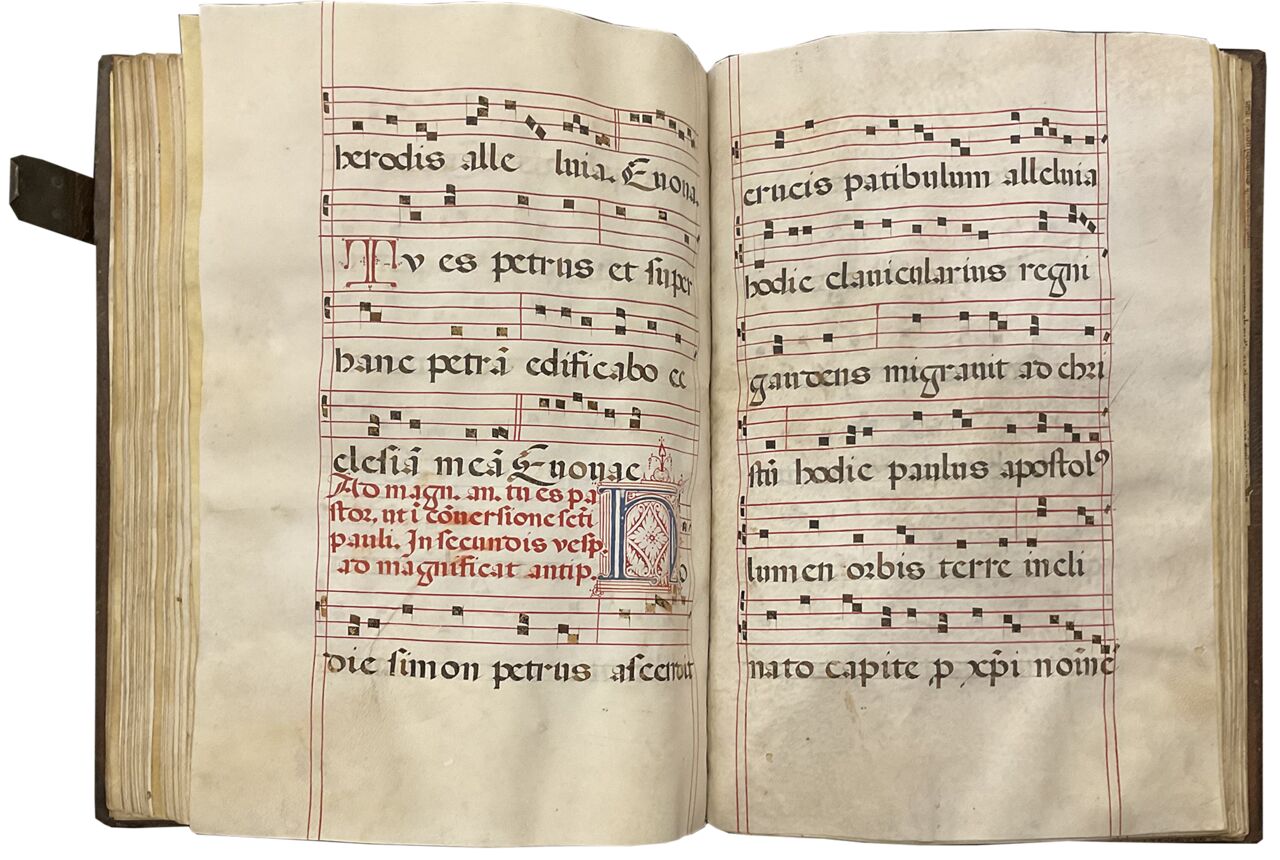 herodis alle luia. Euoua.
Tv es petrus et super
hanc petrā edificabo ec
clesiā meā Euouae
Ad magn. an. tu es pa
stor. ut ī cōuersione scti
pauli. In secundis vesp.
ad magnificat antip. Ho
die simon petrus ascendit
crucis patibulum alleluia
hodie clauicularius regni
gaudens migrauit ad chri
stū hodie paulus apostolꝰ
lumen orbis terre incli
nato capite ꝑ xp̄i noīne